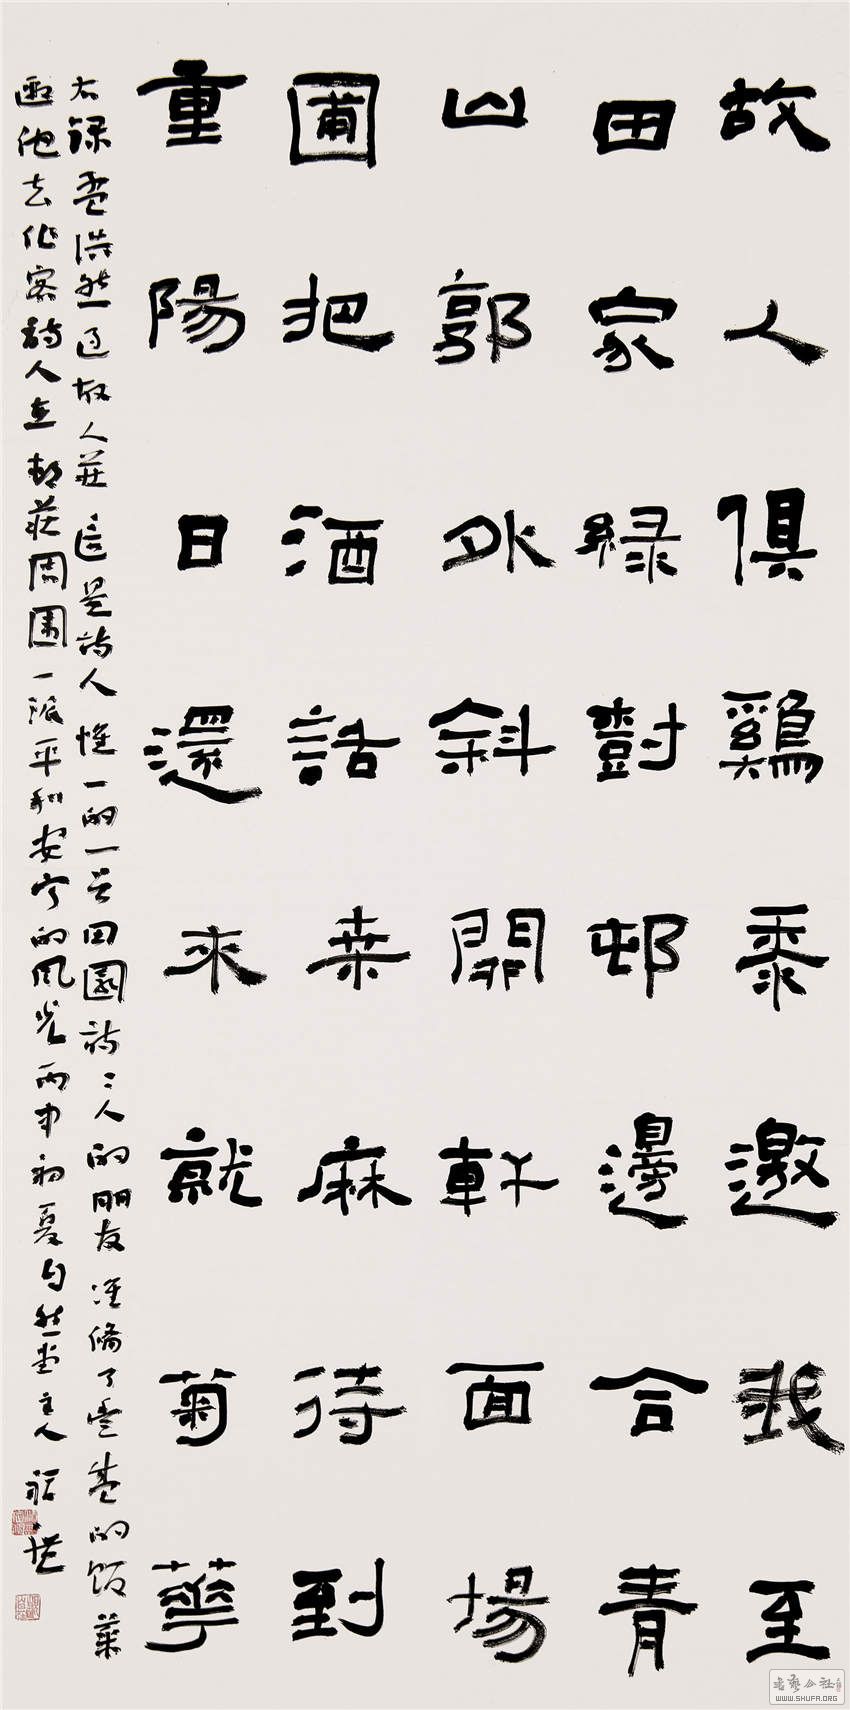 故人俱鷄黍邀我至
田家綠樹邨邊合青
山郭外斜開軒面場
圃把酒話桒麻待到
重陽日還來就菊華
右録孟浩然過故人莊這是詩人惟一的一首田園詩〻人的朋友准備了豐盛的飯菜
邀他去作客詩人在邨莊周圍一派平和安寧的風光丙申初夏自然堂主人
WWW.SHUFA.ORG